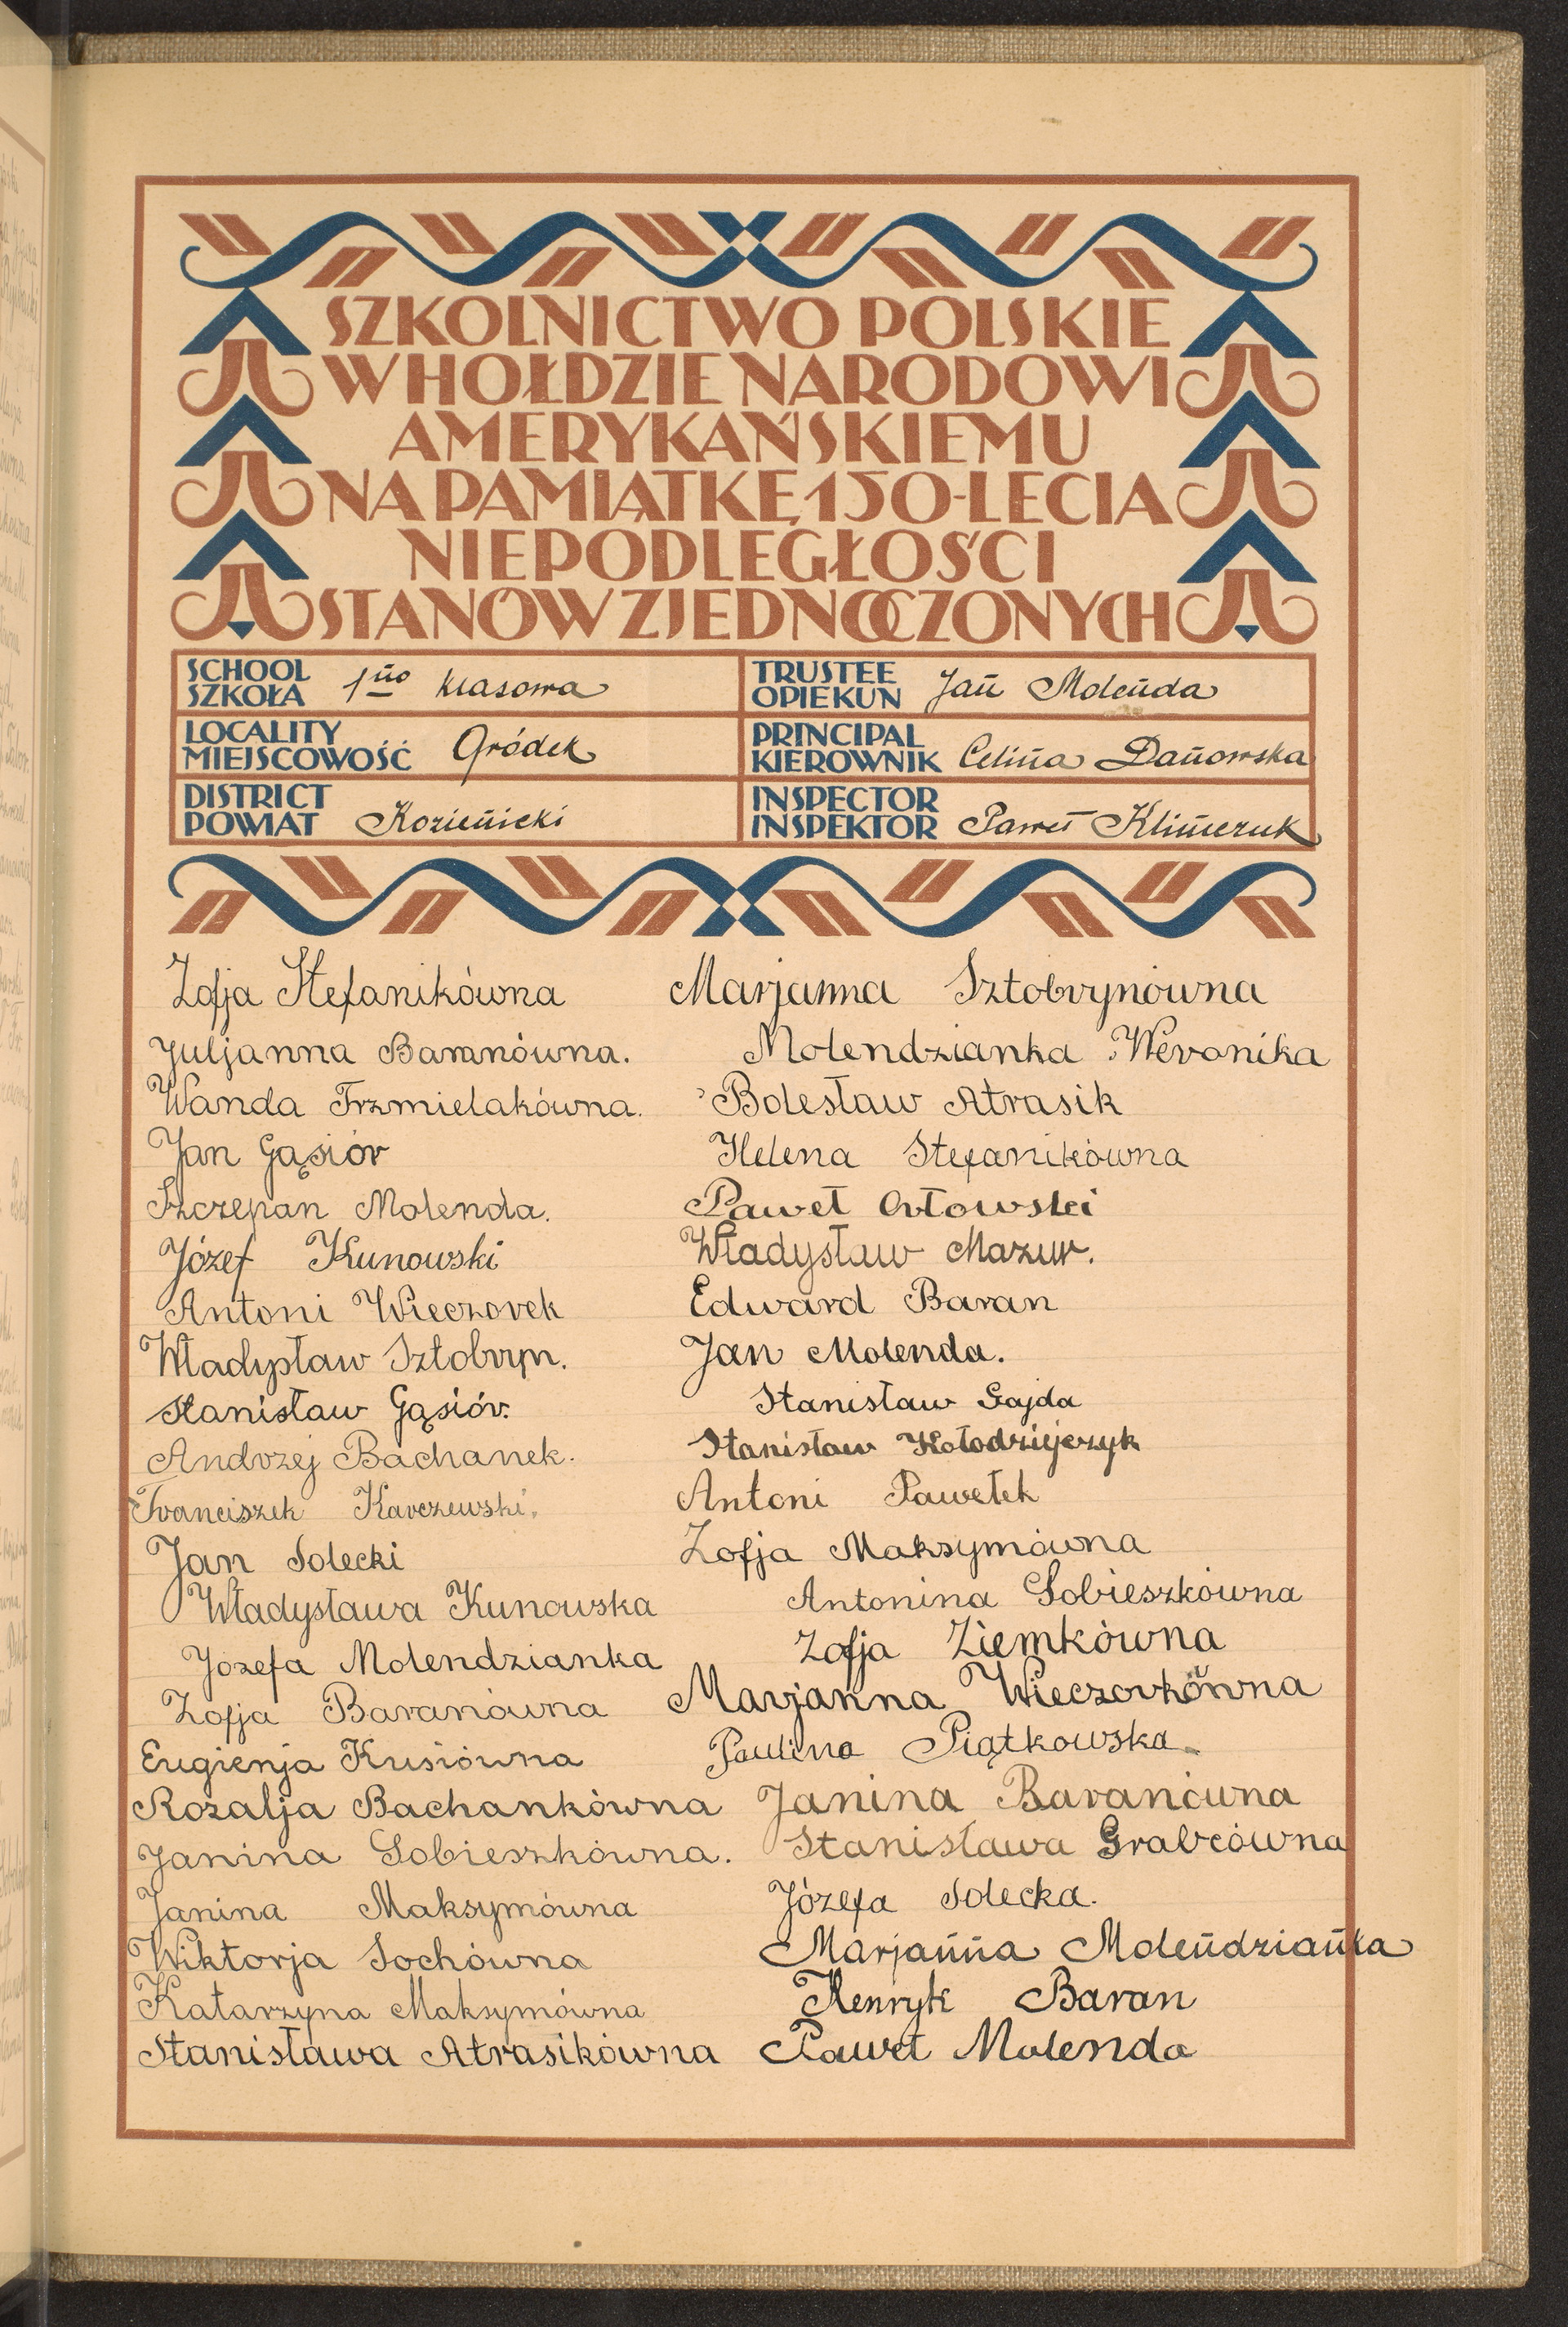 SZKOLNICTWO POLSKIE
W HOŁDZIE NARODOWI
AMERYKAŃSKIEMU
NA PAMIĄTKĘ 150-LECIA
NIEPODLEGŁOŚCI
STANÓW ZJEDNOCZONYCH
SCHOOL
SZKOŁA 1no klasowa
LOCALITY
MIEJSCOWOŚĆ Gródek
DISTRICT
POWIAT Kozienicki
TRUSTEE
OPIEKUN Jan Molenda
PRINCIPAL
KIEROWNIK Celina Danowska
INSPECTOR
INSPEKTOR Paweł Klimczuk
Zofja Stefanikówna
Juljanna Baranówna.
Wanda Trzmielakówna.
Jan Gąsiór
Szczepan Molenda.
Józef Kunowski
Antoni Wieczorek
Władysław Sztobryn.
Stanisław Gąsiór.
Andrzej Bachanek.
Franciszek Karczewski.
Jan Solecki
Władysława Kunowska
Józefa Molendzianka
Zofja Baranówna
Eugienja Kusiówna
Rozalja Bachankówna
Janina Sobieszkówna.
Janina Maksymówna
Wiktorja Sochówna
Katarzyna Maksymówna
Stanisława Atrasikówna
Marjanna Sztobrynówna
Molendzianka Weronika
Bolesław Atrasik
Helena Stefanikówna
Paweł Orłowski
Władysław Mazur.
Edward Baran
Jan Molenda.
Stanisław Gajda
Stanisław Kołodziejczyk
Antoni Pawełek
Zofja Maksymówna
Antonina Sobieszkówna
Zofja Ziemkówna
Marjanna Wieczorkówna
Paulina Piątkowska
Janina Baranówna
Stanisława Grabcówna
Józefa Solecka.
Marjanna Molendzianka
Henryk Baran
Paweł Molenda